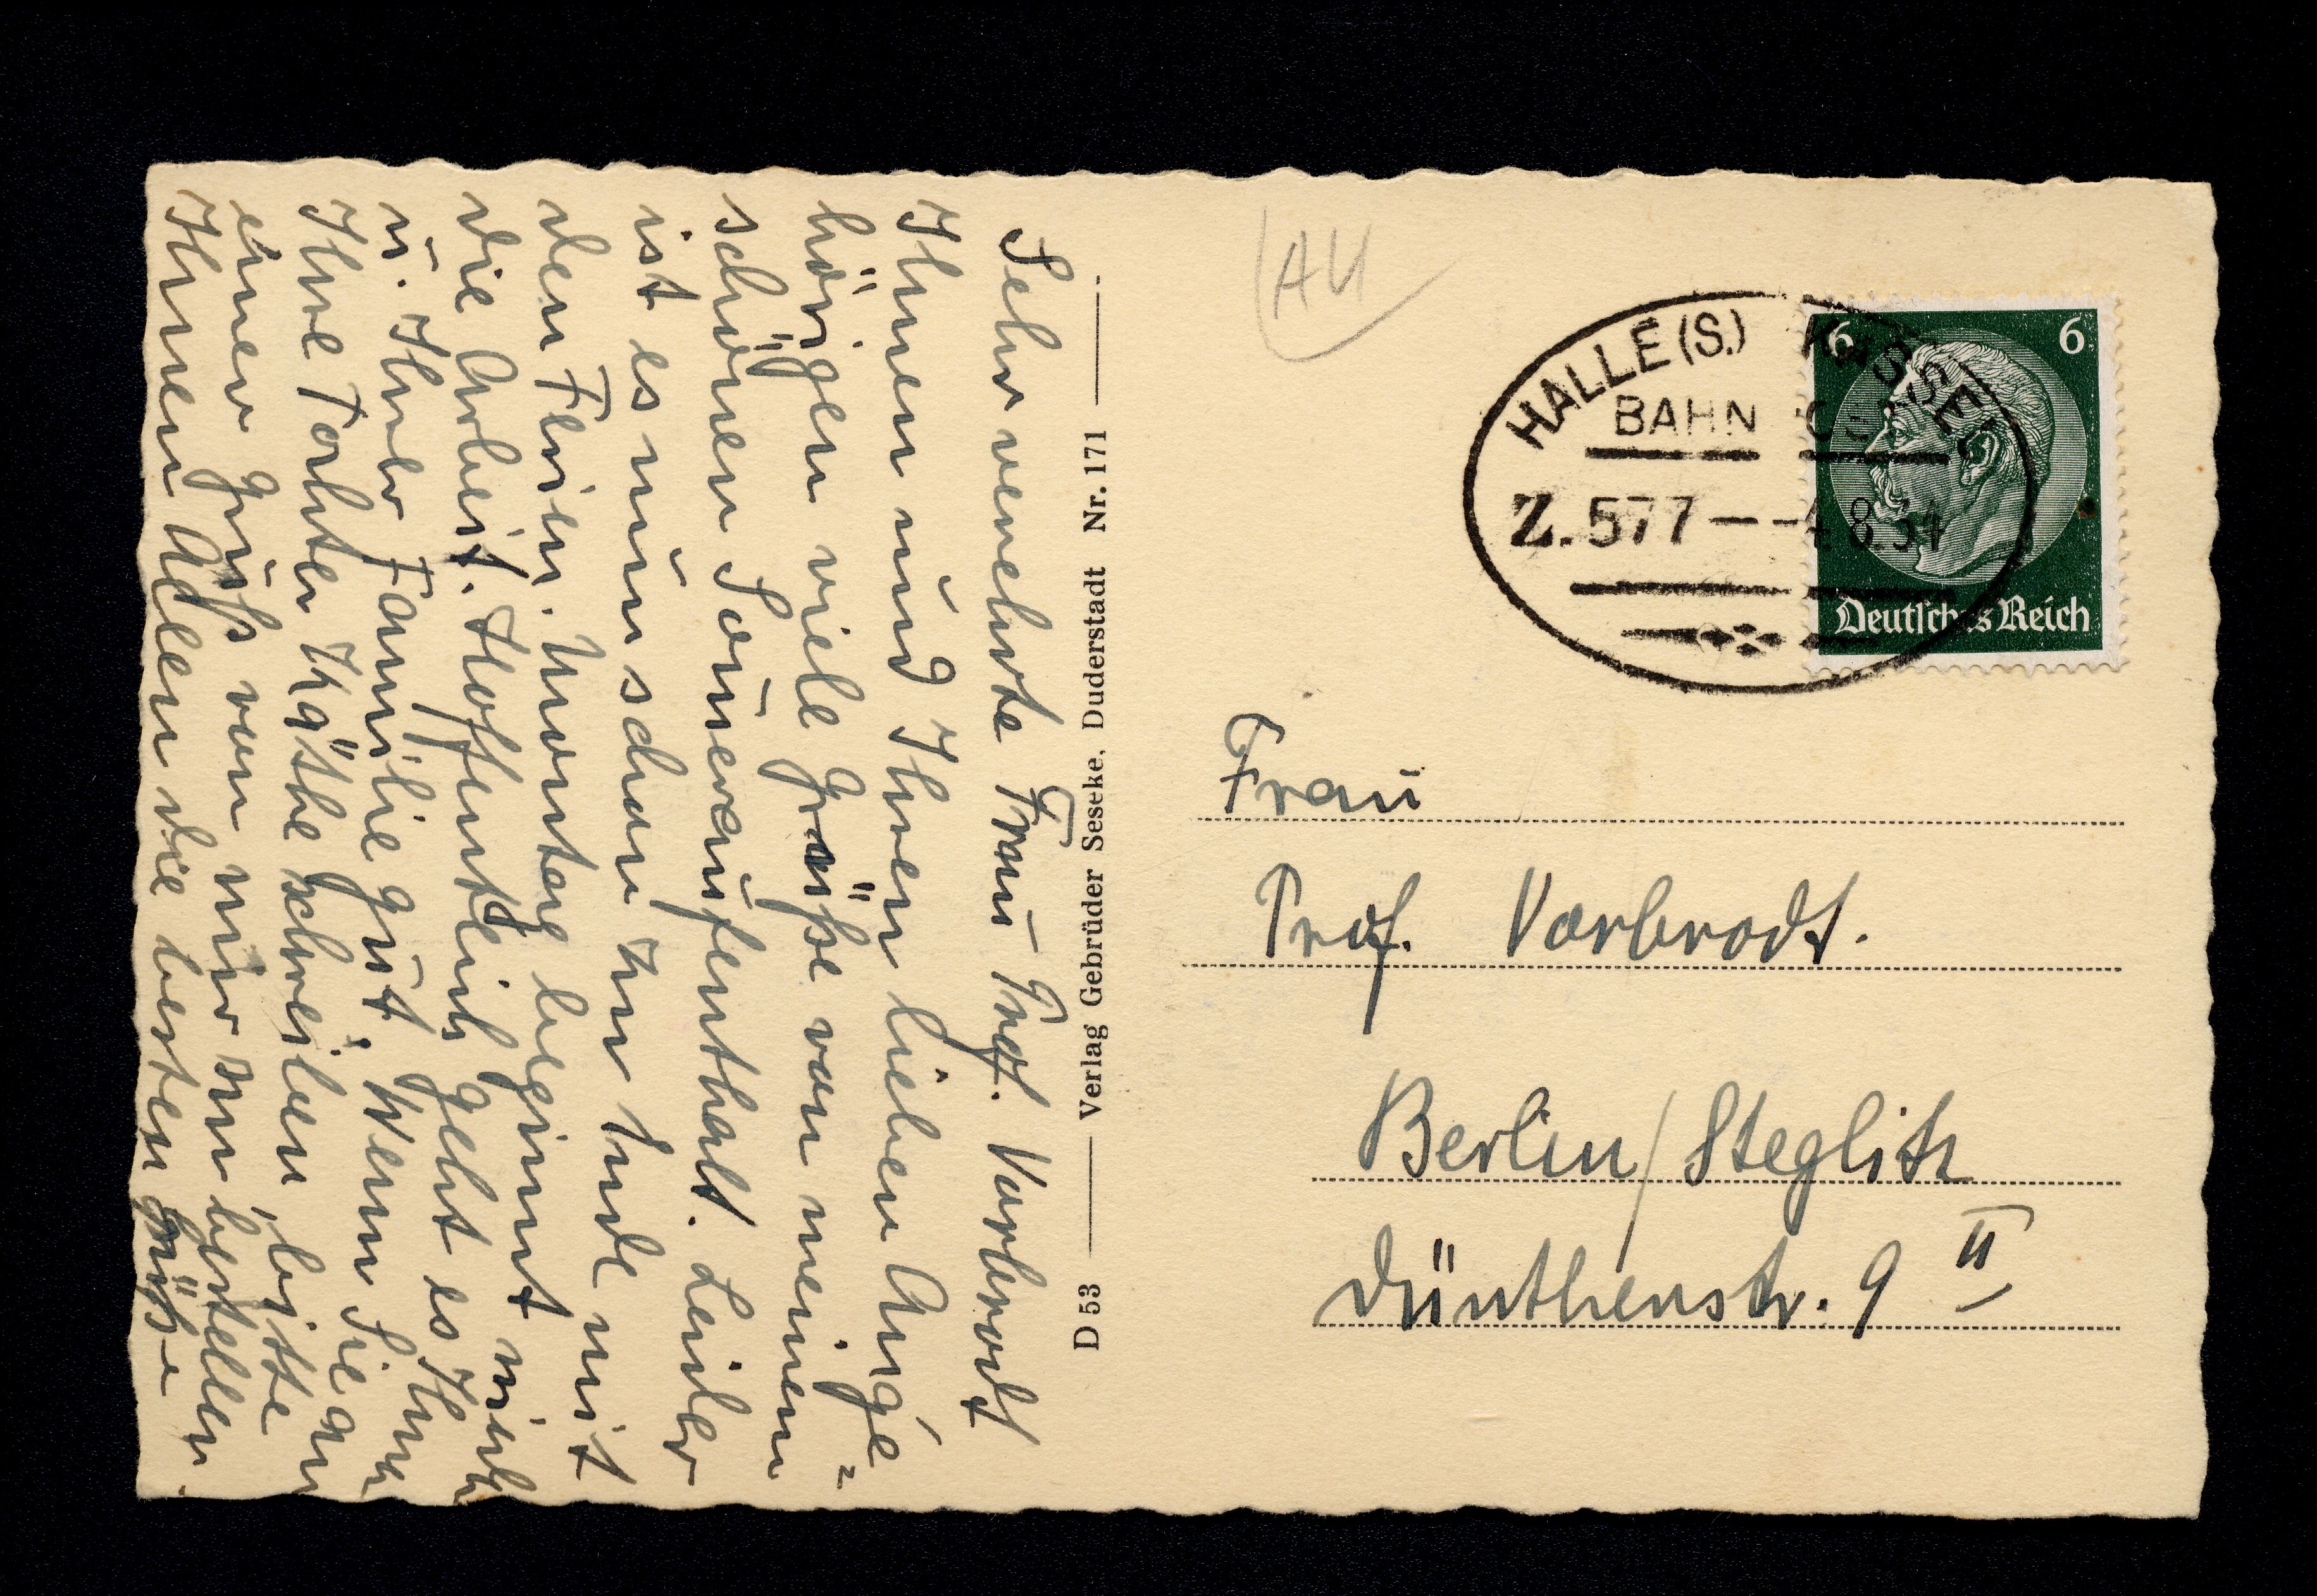 Sehr verehrte Frau Prof. Vorbrodt
Ihnen und Ihren lieben Ange=
hörigen viele Grüße von meinem
schönen Sommeraufenthalt. Leider
ist es nun schon zu Ende mit
den Ferien. Montag beginnt wieder
die Arbeit. Hoffentlich geht es Ihnen
u. Ihrer Familie gut. Wenn Sie an
Ihre Tochter Käthe schreiben, bitte
einen Gruß von mir zu bestellen.
Ihnen Allen die besten Grüße
D 53 Verlag Gebrüder Seseke, Duderstadt Nr. 171
AU
HALLE (S.) KASSEL
BAHN
Z. 577 -- 4 8 34
6 6
Deutsches Reich
Frau
Prof. Vorbrodt.
Berlin/Steglitz
Düntherstr. 9 II